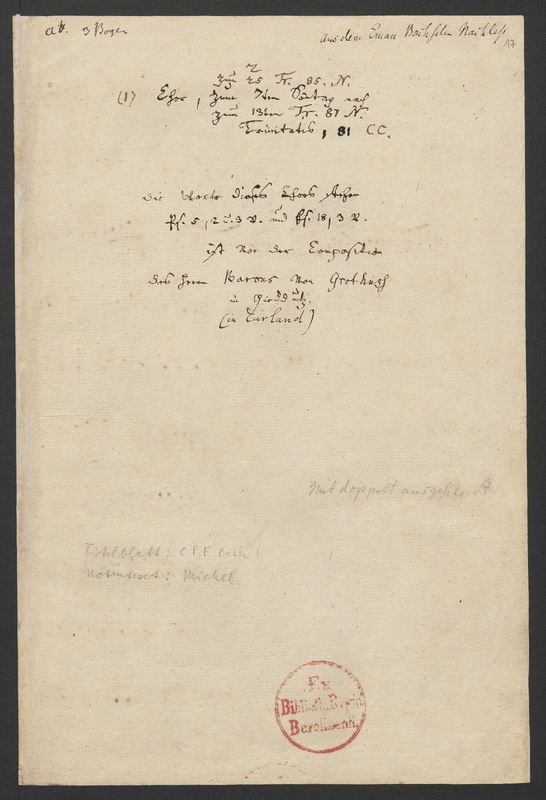 ab. 3 Bogen
aus dem Eman Bachschen Nachlaß
17
2
zum 25 Tr. 85. N.
(1) Chor, zum 7ten Sontag nach
zum 13ten Tr. 87 N.
Trinitatis, 81 CC.
Die Worte dieses Chors stehen
Ps. 5, 2 u. 3 V. und Ps. 18, 3 V.
ist von der Composition
des Herrn Barons von Grothuß
in
(in Curland)
Mit doppelt A
Titelblatt: C P E Bach
Notentext: Michel
Ex
Biblioth. Regia
Berolinenn.